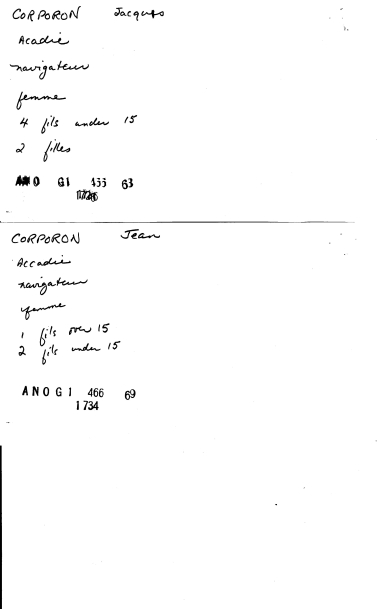 CORPORON Jacques
Acadie
navigateur
femme
4 fils under 15
2 filles
ANO G1 63
CORPORON Jean
Accadie
navigateur
femme
1 fils over 15
2 fils under 15
ANO G1 466 69
1734